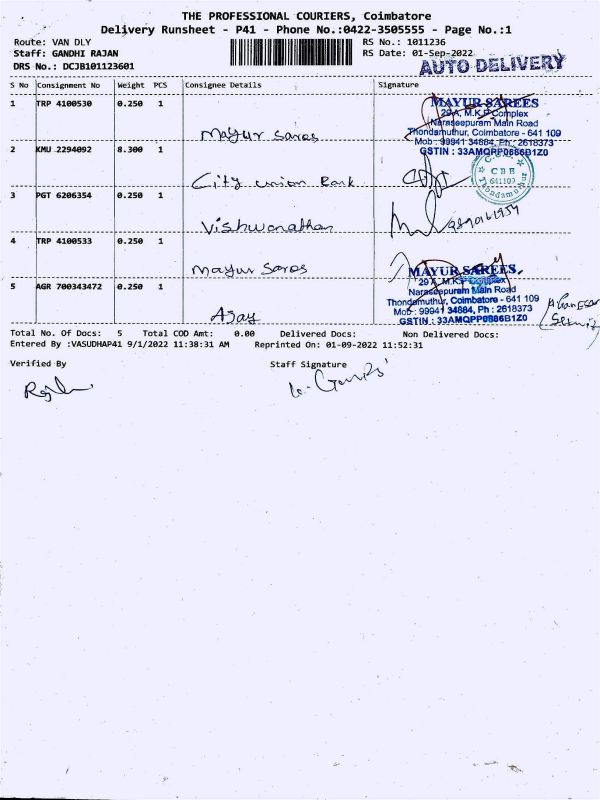 THE PROFESSIONAL COURIERS, Coimbatore
Delivery Runsheet - P41 - Phone No.:0422-3505555 - Page No.:1
Route: VAN DLY RS No.: 1011236
Staff: GANDHI RAJAN RS Date: 01-Sep-2022
DRS No.: DCJB101123601 AUTO DELIVERY
S No Consignment No Weight PCS Consignee Details Signature
1 TRP 4100530 0.250 1
MAYUR SAREES
29 A, M.K.P Complex
Naraseepuram Main Road
Thondamuthur, Coimbatore - 641 109
Mayur Sares
Mob : 99941 34884, Ph : 2618373
2 KMU 2294092 8.300 1 GSTIN : 33AMQPP0686B1Z0
C.U.B.
CBE
641109
Thondamuthur
City union Bank
3 PGT 6206354 0.250 1
Vishwanathan
4 TRP 4100533 0.250 1
Mayur Sares
MAYUR SAREES,
29 A, M.K.P Complex
5 AGR 700343472 0.250 1 Naraseepuram Main Road
Thondamuthur, Coimbatore - 641 109
Mob : 99941 34884, Ph : 2618373
Ajay
GSTIN : 33AMQPP0686B1Z0
Total No. Of Docs: 5 Total COD Amt: 0.00 Delivered Docs: Non Delivered Docs:
Entered By :VASUDHAP41 9/1/2022 11:38:31 AM Reprinted On: 01-09-2022 11:52:31
Verified By Staff Signature